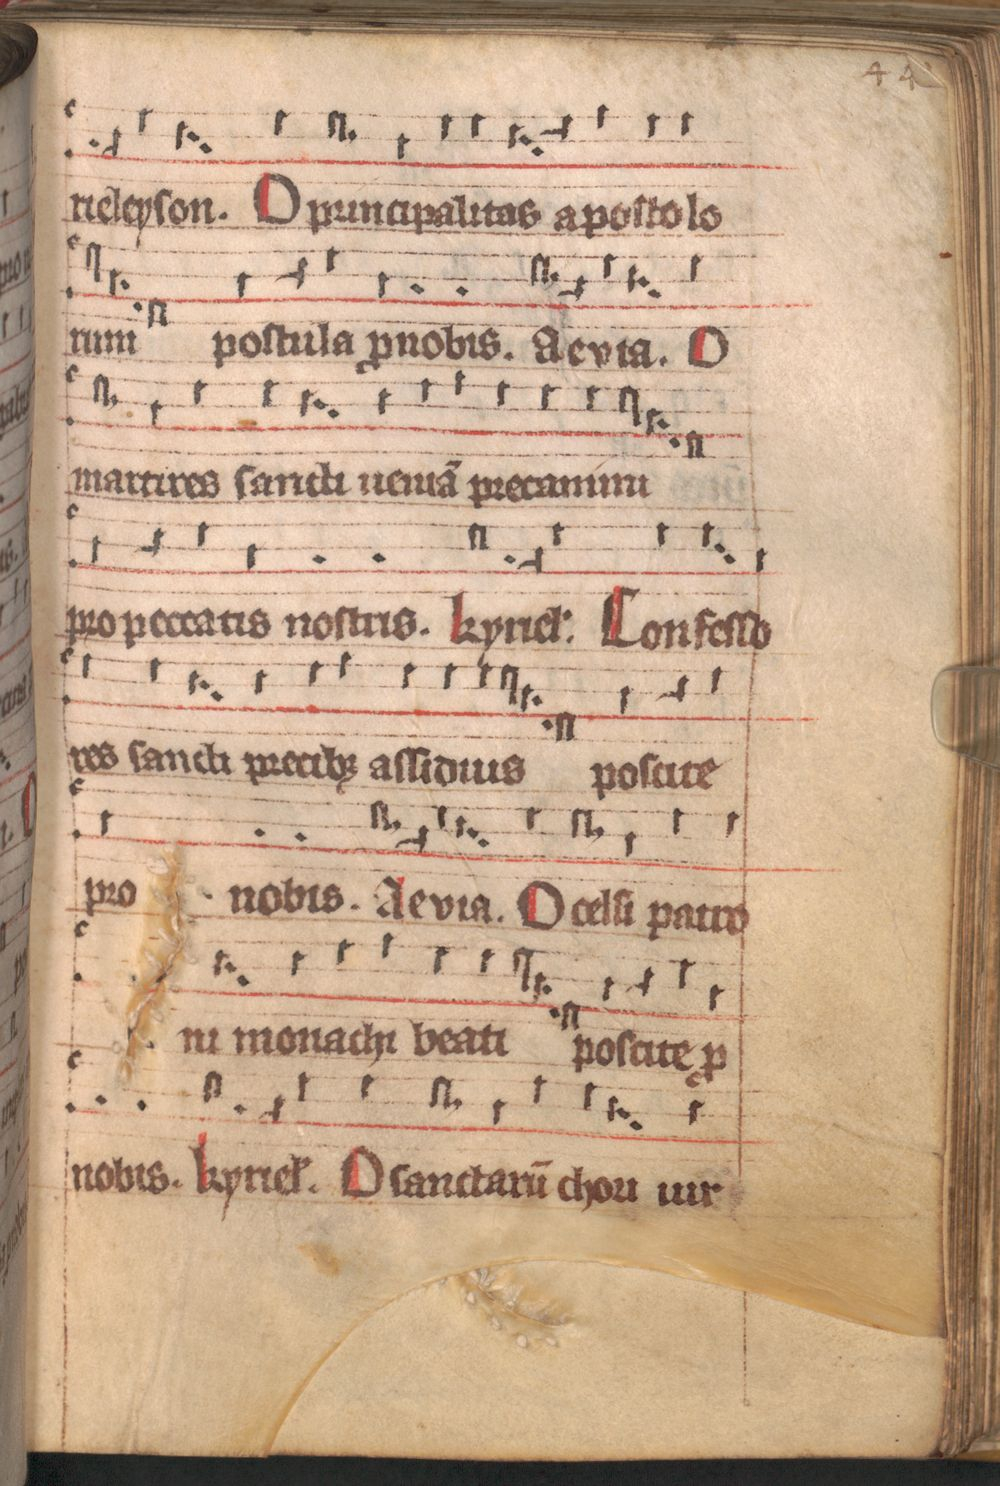 44
rieleyson. O principalitas apostolo
rum postula pnobis. Aevia. O
martires sancti ueniā precamini
pro peccatis nostris. kyriel. Confesso
res sancti precibꝫ assiduis poscite
pro nobis. Aevia. O celsi patro
ni monachi beati poscite p
nobis. kyriel. O sanctarū chori uir